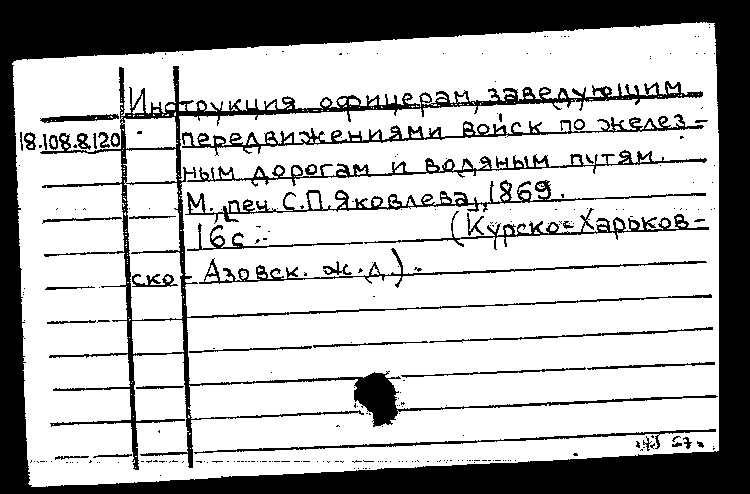 Инструкция офицерам, заведующим
18.108.8.120 передвижениями войск по желез-
ным дорогам и водяным путям.
М., печ. С.П.Яковлева, 1869.
16с. (Курско-Харьков-
ско-Азовск. ж.д.).